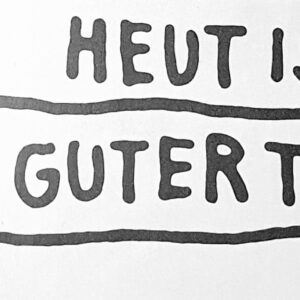 HEUT I
GUTER T